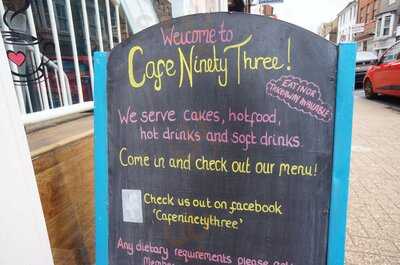 Welcome to
Cafe Ninety Three!
EAT IN OR
TAKEAWAY AVAILABLE
We serve cakes, hotfood,
hot drinks and soft drinks.
Come in and check out our menu!
Check us out on facebook
'Cafeninetythree'
Any dietary requirements please ask
Member